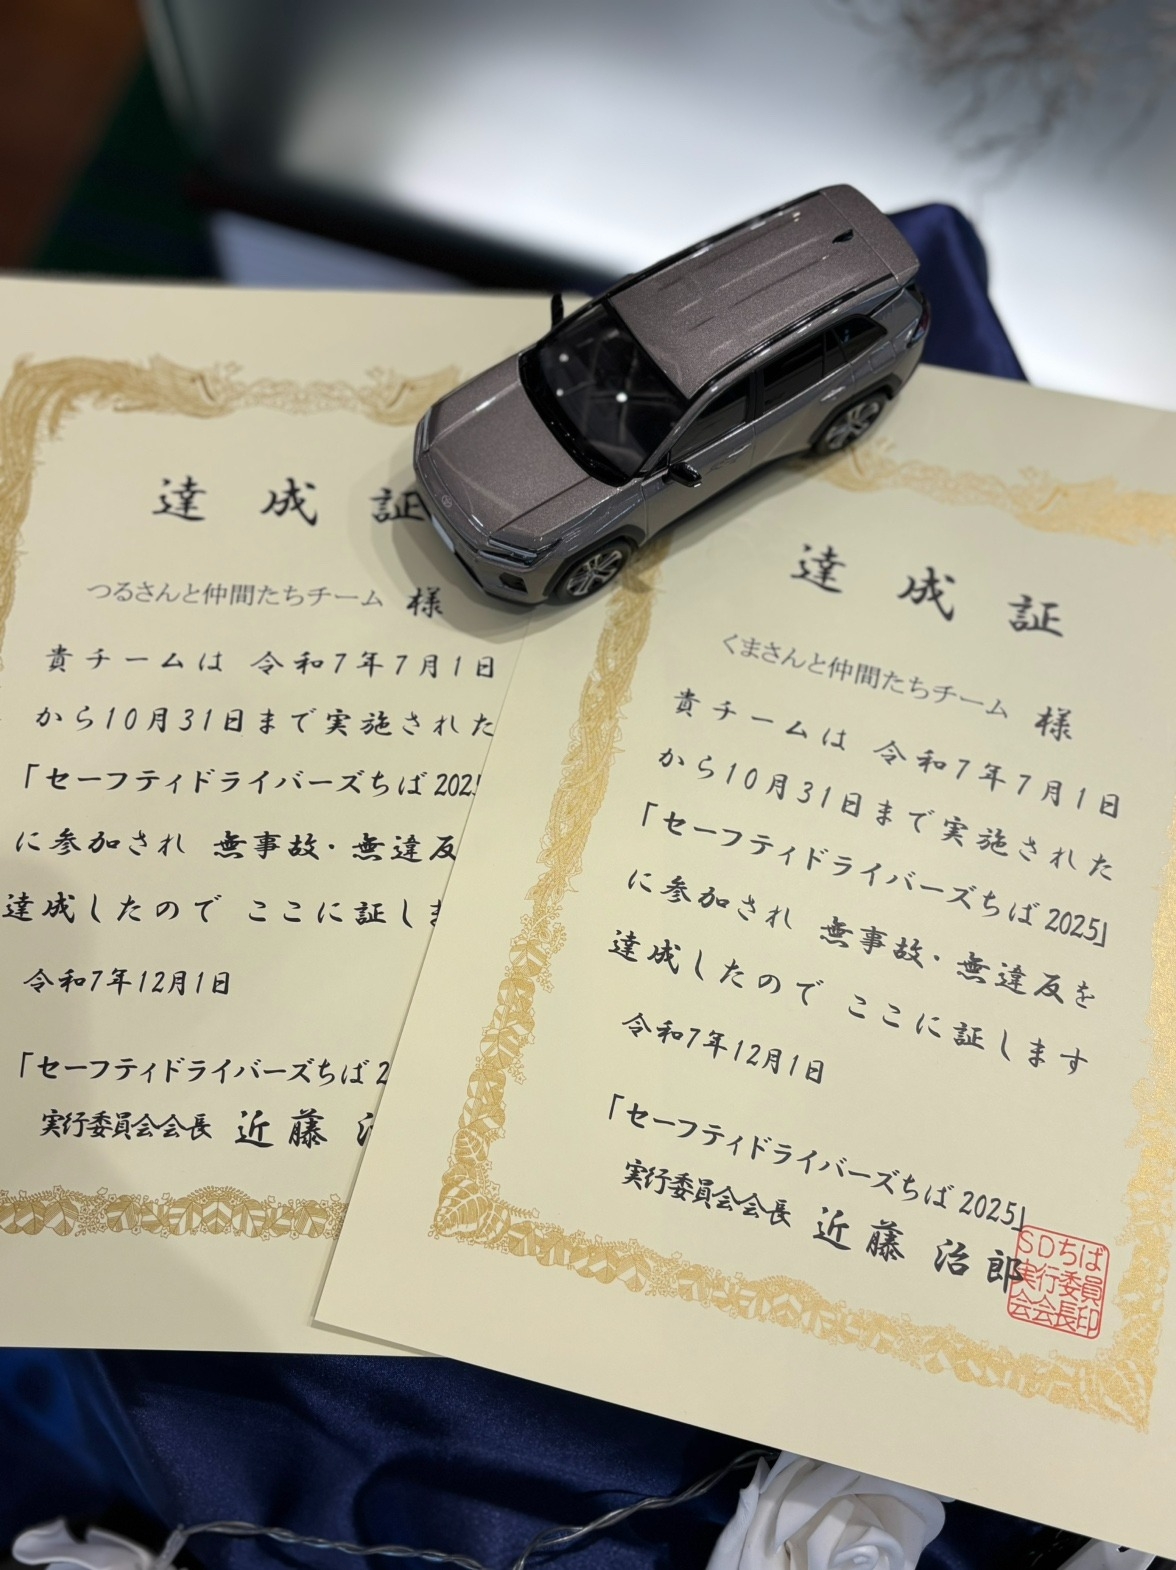 達成証
つるさんと仲間たちチーム 様
貴チームは 令和7年7月1日
から10月31日まで実施された
「セーフティドライバーズちば 202
に参加され 無事故・無違反
達成したので ここに証し
令和7年12月1日
「セーフティドライバーズちば 2
実行委員会会長 近藤
達成証
くまさんと仲間たちチーム 様
貴チームは 令和7年7月1日
から10月31日まで実施された
「セーフティドライバーズちば 2025」
に参加され 無事故・無違反を
達成したので ここに証します
令和7年12月1日
「セーフティドライバーズちば 2025」
実行委員会会長 近藤 治郎
SDちば
実行委員
会会長印